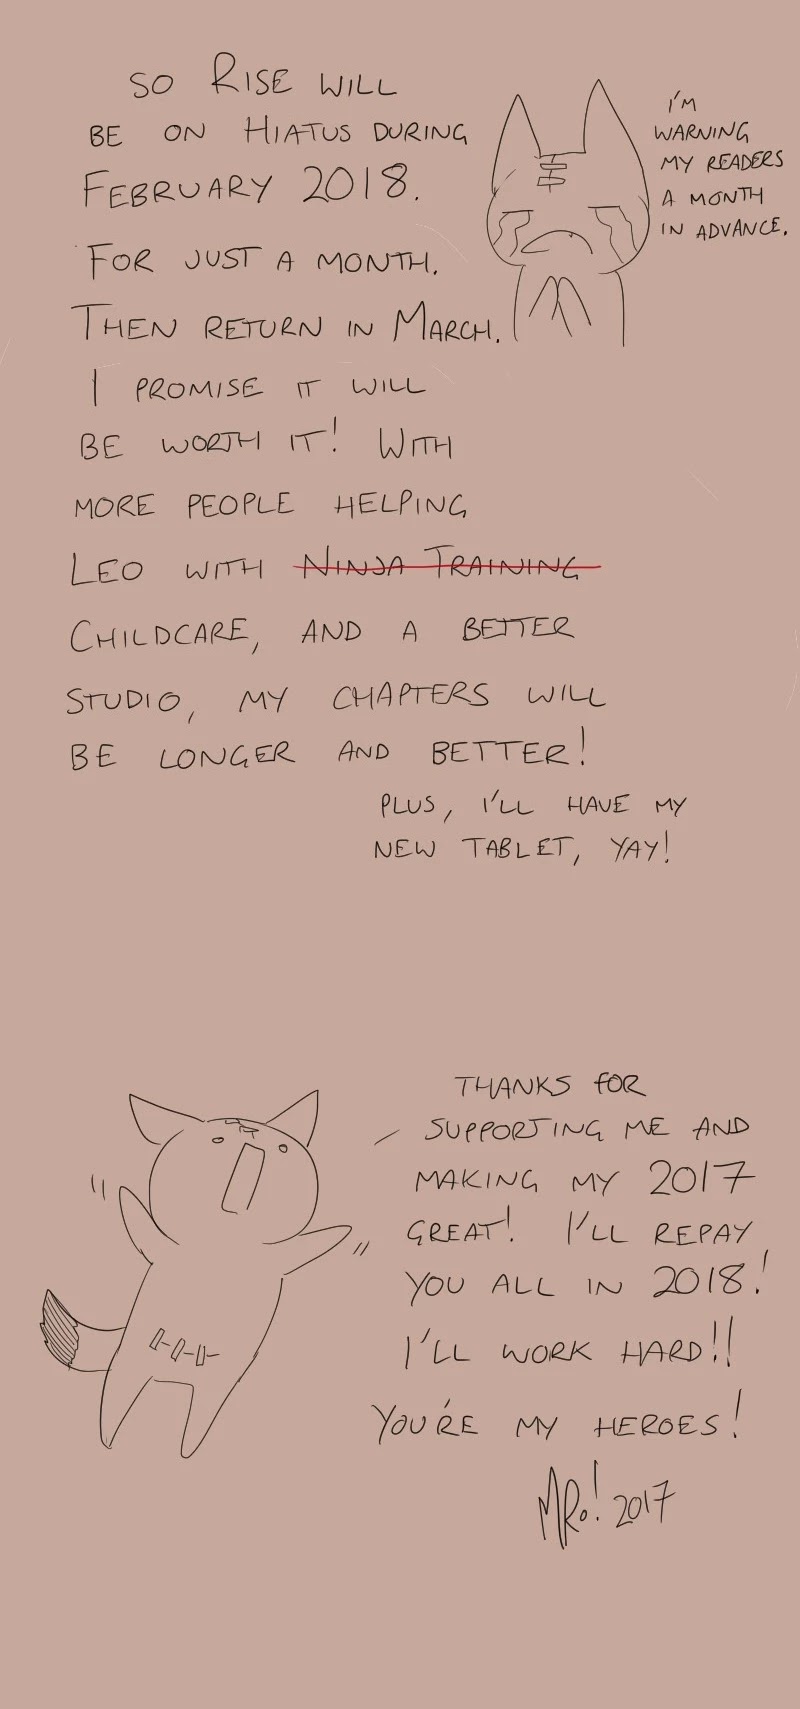 SO RISE WILL
BE ON HIATUS DURING
FEBRUARY 2018.
FOR JUST A MONTH.
THEN RETURN IN MARCH.
I PROMISE IT WILL
BE WORTH IT! WITH
MORE PEOPLE HELPING
LEO WITH NINJA TRAINING
CHILDCARE, AND A BETTER
STUDIO, MY CHAPTERS WILL
BE LONGER AND BETTER!
PLUS, I'LL HAVE MY
NEW TABLET, YAY!
I'M
WARNING
MY READERS
A MONTH
IN ADVANCE.
THANKS FOR
SUPPORTING ME AND
MAKING MY 2017
GREAT! I'LL REPAY
YOU ALL IN 2018!
I'LL WORK HARD!!
YOU'RE MY HEROES!
MRo! 2017